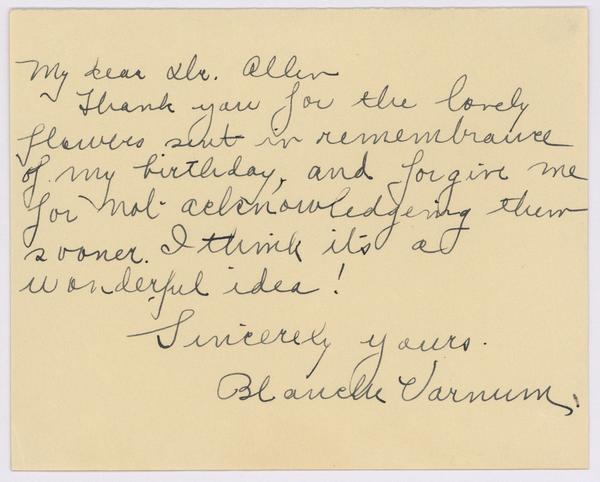 My dear Dr. Allen
Thank you for the lovely
flowers sent in remembrance
of my birthday, and forgive me
for not acknowledgeing them
sooner. I think it's a
wonderful idea!
Sincerely yours.
Blanche Varnum.